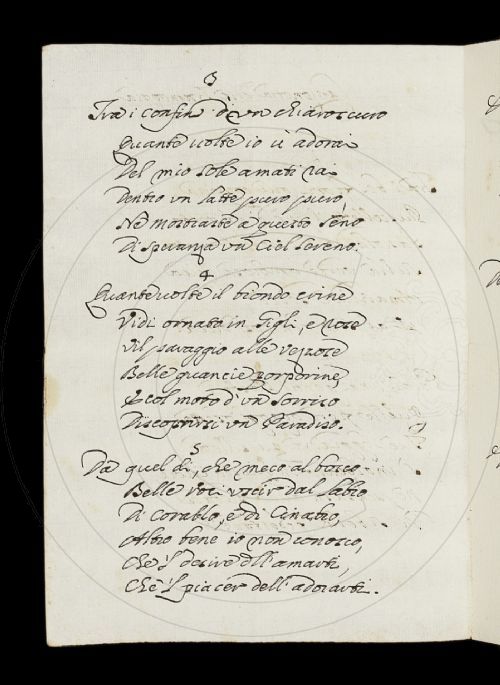 3
Tra i confin' d'un chiaroscuro
Quante volte io vi adorai
Del mio sole amati rai
Dentro un latte puro puro,
Ne mostraste a questo seno
Di speranza un Ciel sereno.
4
Quante volte il biondo crine
Vidi ornato in Gigli, e rose
Vil paraggio alle vezzose
Belle guancie porporine,
E col moto d'un sorriso
Discoprirsi un Paradiso.
5
Da quel dì, che meco al bosco
Belle voci uscir dal labro
Di Corallo, e di Cinabro,
Altro bene io non conosco,
Che 'l desire dell'amarti,
Che 'l piacer dell'adorarti.